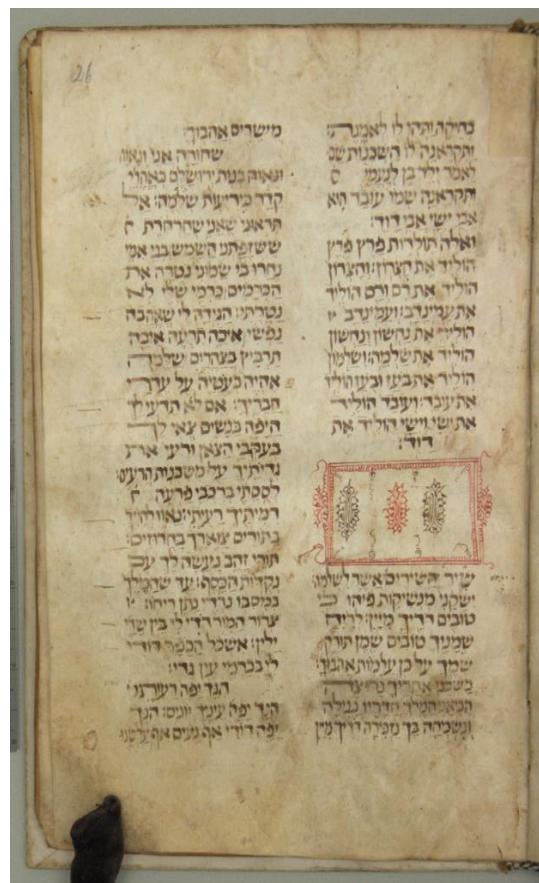 26
בחיקה ותהי לו לאמנת
ותקראנה לו השכנות שם
לאמר ילד בן לנעמי
ותקראנה שמו עובד הוא
אבי ישי אבי דוד׃
ואלה תולדות פרץ פרץ
הוליד את חצרון׃ וחצרון
הוליד את רם ורם הוליד
את עמינדב׃ ועמינדב
הוליד את נחשון ונחשון
הוליד את שלמה׃ ושלמון
הוליד את בעז ובעז הוליד
את עובד׃ ועובד הוליד
את ישי וישי הוליד את
דוד׃
שיר השירים אשר לשלמה׃
ישקני מנשיקות פיהו כי
טובים דדיך מיין׃ לריח
שמניך טובים שמן תורק
שמך על כן עלמות אהבוך׃
משכני אחריך נרוצה
הביאני המלך חדריו נגילה
ונשמחה בך נזכירה דדיך מיין
מישרים אהבוך׃
שחורה אני ונאוה
בנות ירושלם כאהלי
קדר כיריעות שלמה׃ אל
תראוני שאני שחרחרת
ששזפתני השמש בני אמי
נחרו בי שמוני נטרה את
הכרמים כרמי שלי לא
נטרתי׃ הגידה לי שאהבה
נפשי איכה תרעה איכה
תרביץ בצהרים שלמה
אהיה כעטיה על עדרי
חבריך׃ אם לא תדעי לך
היפה בנשים צאי לך
בעקבי הצאן ורעי את
גדיתיך על משכנות הרעים׃
לססתי ברכבי פרעה
דמיתיך רעיתי׃ נאוו לחייך
בתורים צוארך בחרוזים׃
תורי זהב נעשה לך עם
נקדות הכסף׃ עד שהמלך
במסבו נרדי נתן ריחו׃
צרור המור דודי לי בין שדי
ילין׃ אשכל הכפר דודי
לי בכרמי עין גדי׃
הנך יפה רעיתי
הנך יפה עיניך יונים׃ הנך
יפה דודי אף נעים אף ערשנו